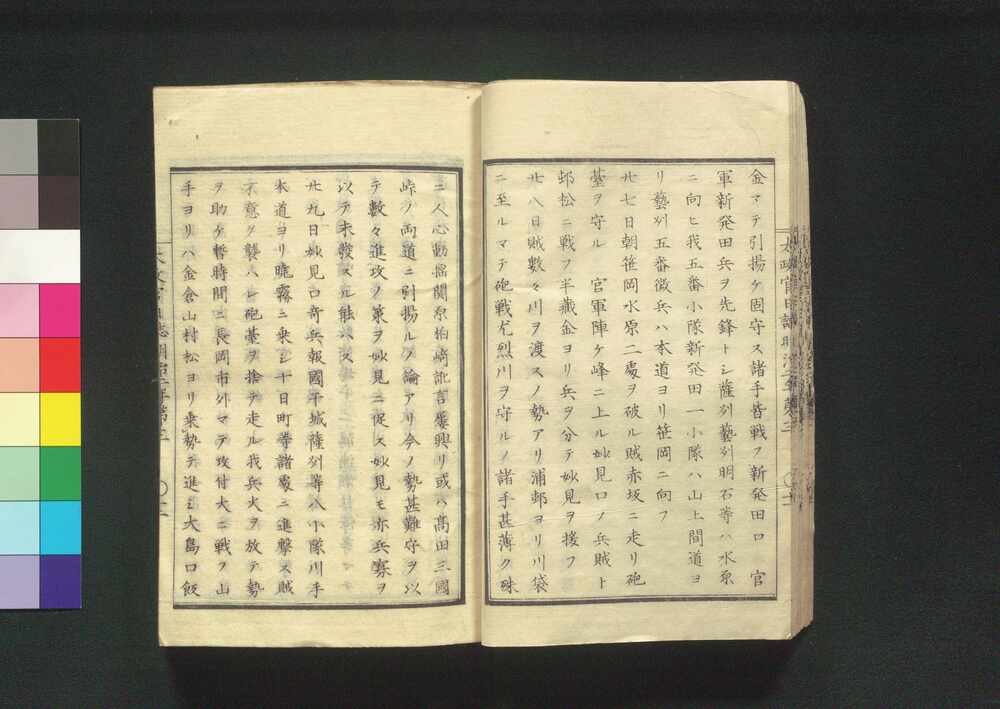 金マテ引揚ケ固守ス諸手皆戦フ新発田口　官
軍新発田兵ヲ先鋒トシ薩州藝州明石等ハ水原
ニ向ヒ我五番小隊新発田一小隊ハ山上間道ヨ
リ藝州五番徴兵ハ本道ヨリ笹岡ニ向フ
廿七日朝笹岡水原二處ヲ破ル賊赤坂ニ走リ砲
臺ヲ守ル　官軍陣ケ峰ニ上ル妙見口ノ兵賊ト
邨松ニ戦フ半藏金ヨリ兵ヲ分テ妙見ヲ援フ
廿八日賊數々川ヲ渡スノ勢アリ浦邨ヨリ川袋
ニ至ルマテ砲戦尤烈川ヲ守ルノ諸手甚薄ク殊
太政官日誌明治二年第三
ニ人心動揺関原柏崎訛言屡興リ或ハ髙田三國
峠ノ両道ニ引揚ルノ論アリ今ノ勢甚難守ヲ以
テ數々進攻ノ策ヲ妙見ニ促ス妙見モ亦兵寡ヲ
以テ未發スル能ハス
廿九日妙見口奇兵報國干城薩州等八小隊川手
本道ヨリ曉霧ニ乗シ十日町等諸處ニ進撃ス賊
不意ヲ襲ハレ砲臺ヲ捨テ走ル我兵火ヲ放テ勢
ヲ助ケ暫時間ニ長岡市外マテ攻付大ニ戦フ山
手ヨリハ金倉山村松ヨリ乗勢テ進ミ大島口飯